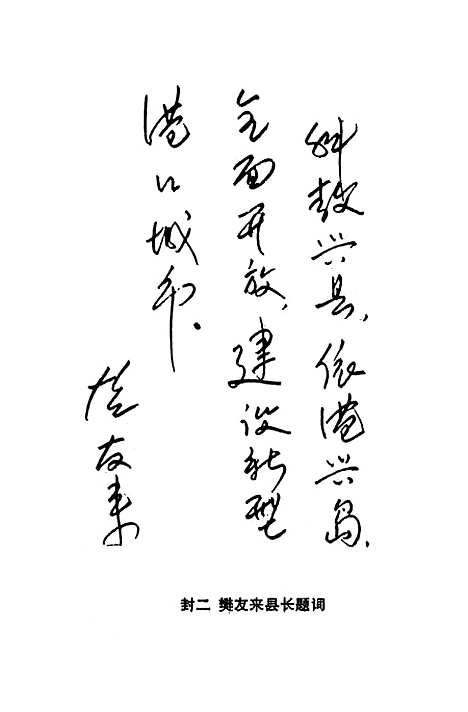 科教兴县，依港兴岛，
全面开放，建设新型
港口城市。
樊友来
封二 樊友来县长题词